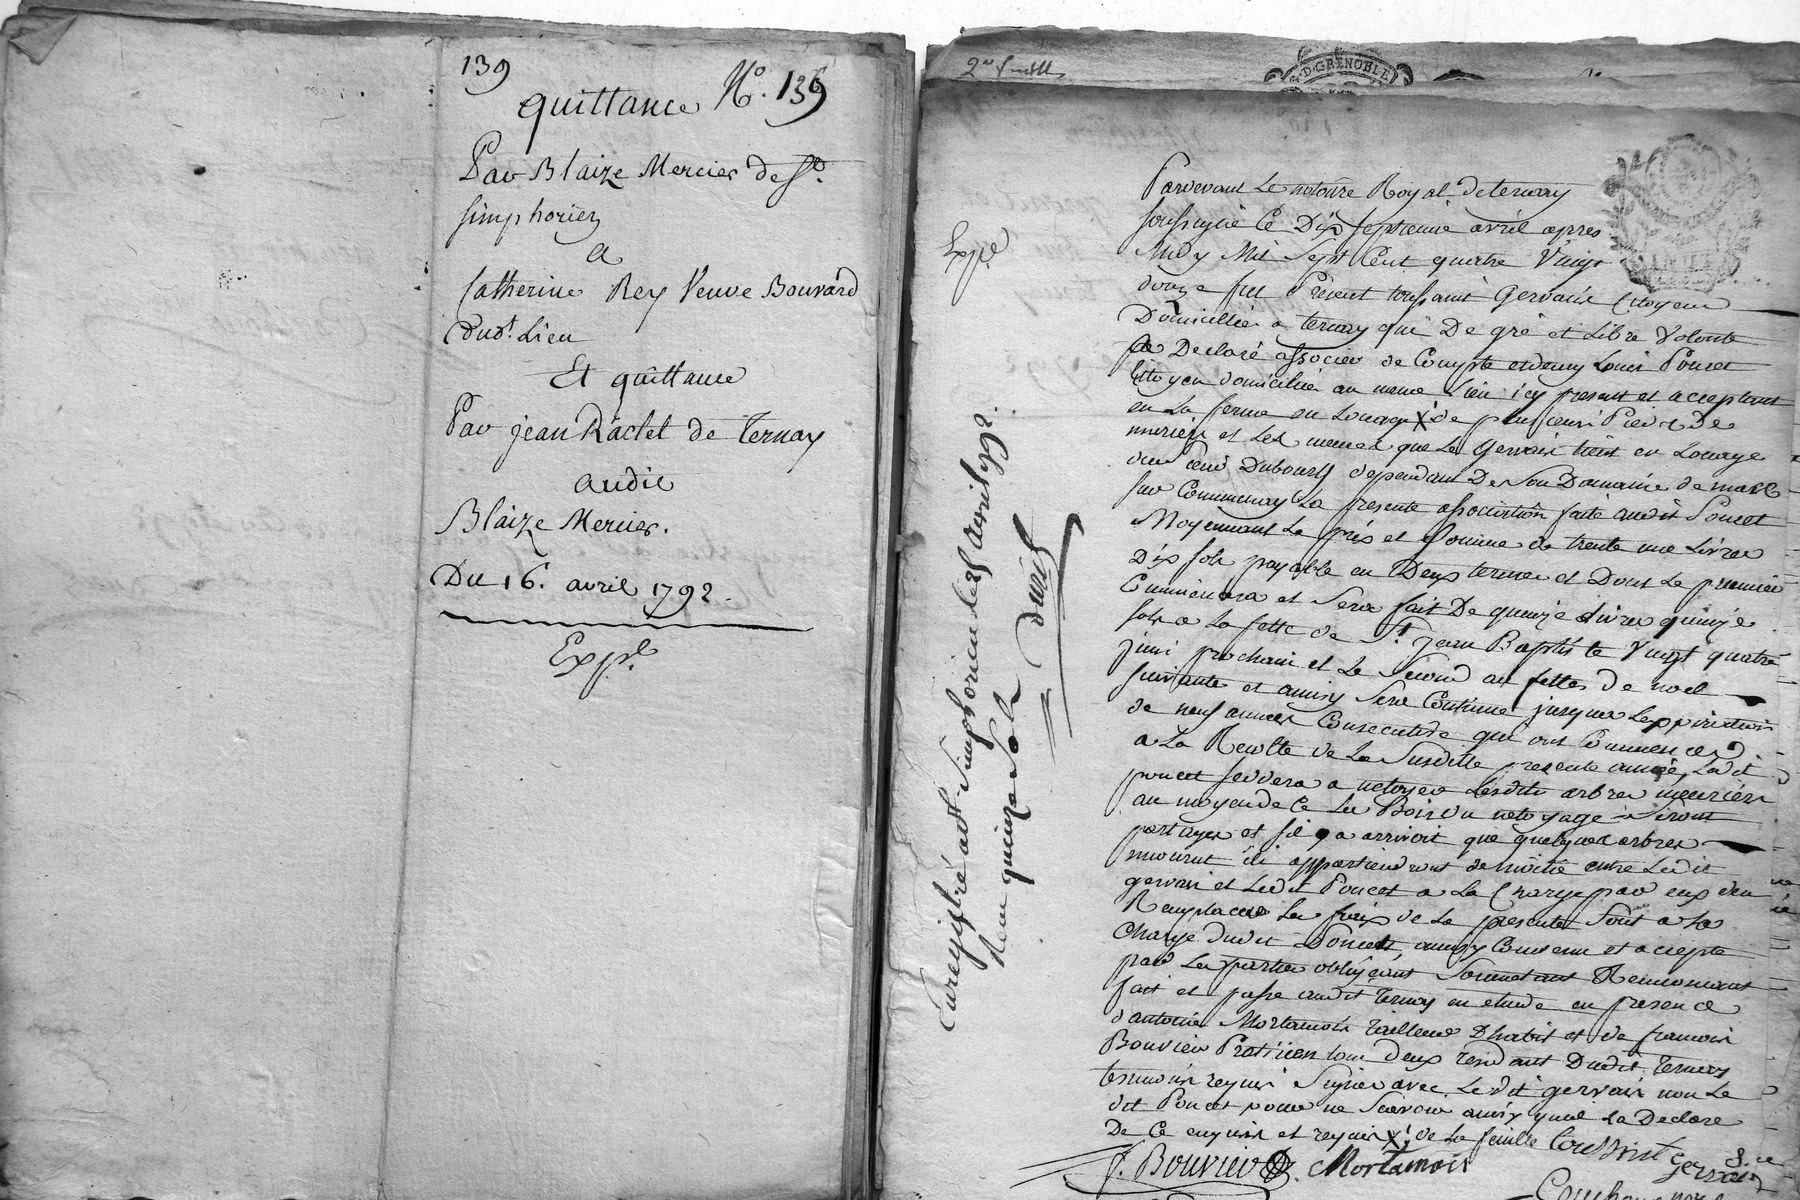 139
quittance N.° 139
Par Blaize Mercier de St.
simphorien
a
Catherine Rey Veuve Bouvard
dudt. Lieu
Et quittance
Par jean Ractel de Ternay
audit
Blaize Mercier.
Du 16. avril 1792.
Expé
2e feuille
D. GRENOBLE
Expé
Pardevant Le notaire Royal de ternay
soussigné Ce Dix septieme avril apres
Midy Mil Sept Cent quatre Vingt
douze fut Présent toussaint Gervais Citoyen
Domicillié a ternay qui De gré et Libre Volonté
a Declaré associer de Compte et demy Louis Poncet
Citoyen domicilié au meme Lieu icy present et acceptant
en La ferme ou Louage X de plusieurs Pieds de
muriers et Les memes que Le Gervais tient en Louage
du Dubourg dependant De Son Domaine de
sur Communay La presente association faite audit Poncet
Moyennant Le prix et Somme de trente une Livres
Dix sols payable en Deux termes et Dont Le premier
Commencera et Sera fait De quinze Livres quinze
sols a La fette de St. jean Baptiste Vingt quatre
juin prochain et Le Second au fettes de noel
suivante et ainsy Sera Continué jusques Lexpiration
de neuf années Consecutive qui ont Commencés
a La Recolte de La Susditte presente année, Ledit
poncet a netoyer Lesdits arbres meuriers
au moyen de Ce Les Bois du netoyage Seront
partagés et sil arrivoit que quelques arbres
mourut ils appartiendront de moitié entre Ledit
gervais et Ledit Poncet a La Charge par eux den
Remplacer Les frais de La presente Sont a La
Charge dudit Poncet ainsy Convenu et accepté
par Les parties obligeant Soumettant Renonceant
fait et passé audit Ternay en etude en presence
dantoine Mortamois tailleur Dhabit et de francois
Bouvier Praticien tous deux residant Dudit Ternay
temoins requis Signés avec Ledit gervais non Le
dit Poncet pour ne Scavoir ainsy quil La Declaré
De Ce enquis et requis X de La feuille
toussaint gervais
f. Bouvier Mortamois
Enregistré a St. Simphorien le 28 avril 1792.
Recu quinze Sols